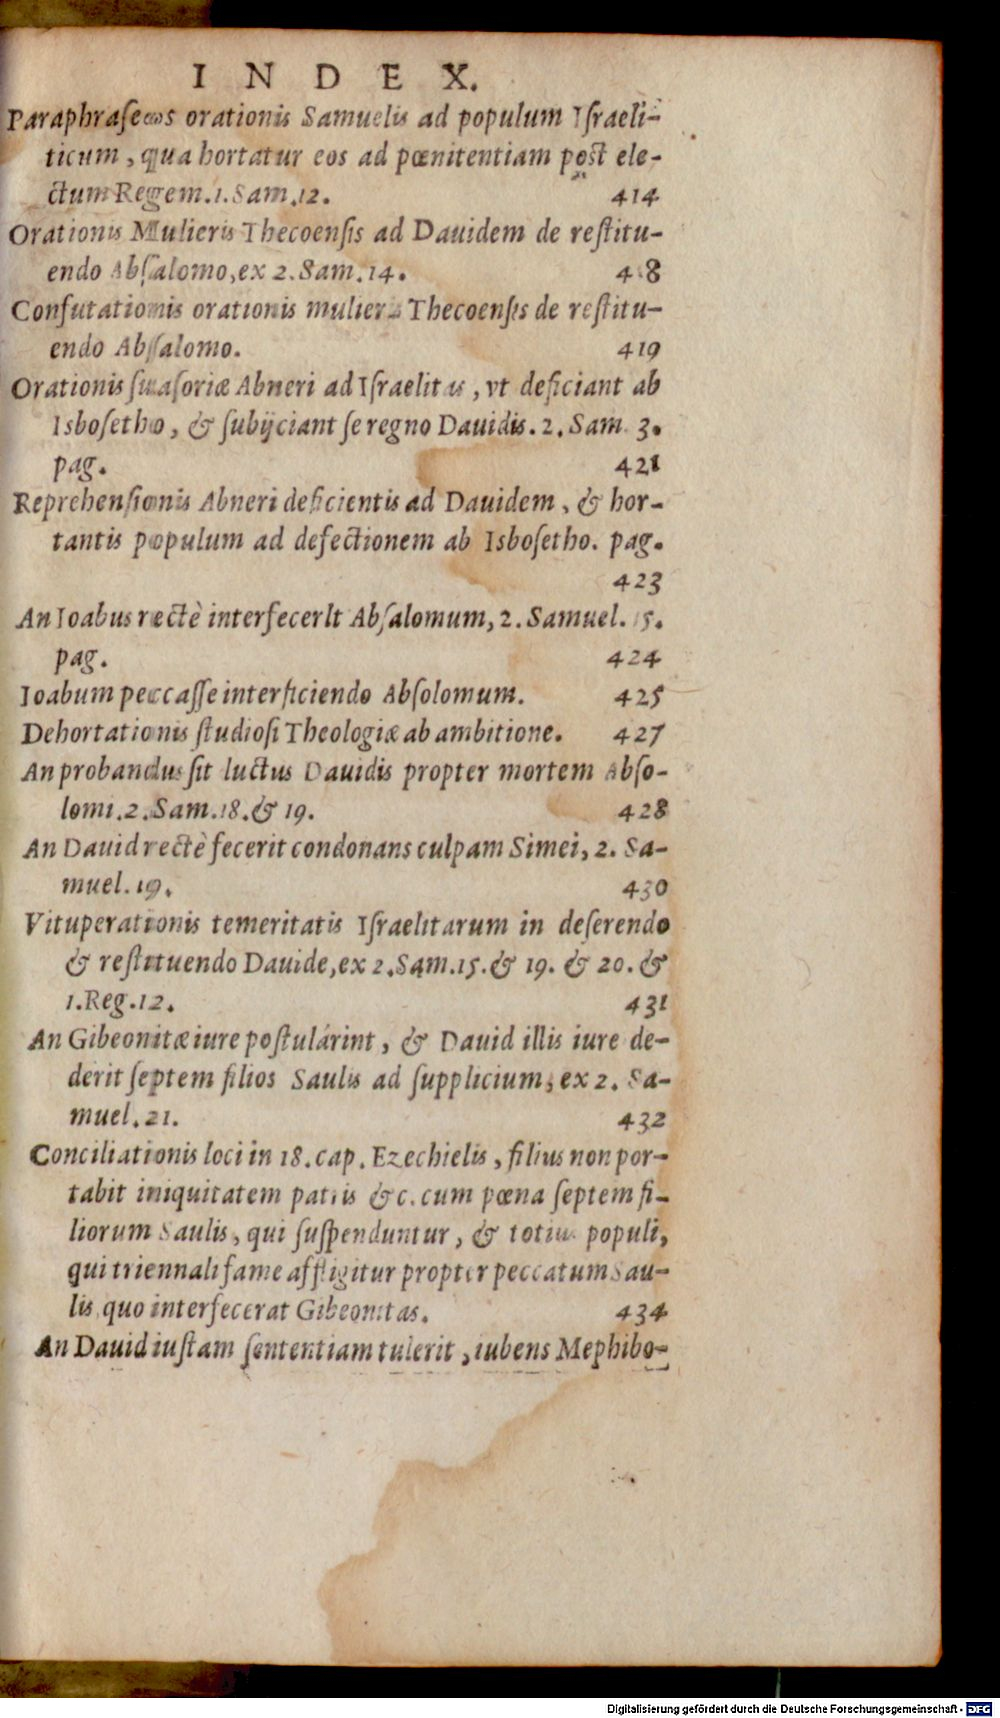 INDEX.
Paraphraseως orationis Samuelis ad populum Iſraeli-
ticum, qua hortatur eos ad pœnitentiam poſt ele-
ctum Regem. 1. Sam. 12. 414
Orationis Mulieris Thecoenſis ad Dauidem de reſtitu-
endo Abſalomo, ex 2. Sam. 14. 418
Confutationis orationis mulieris Thecoenſis de reſtitu-
endo Abſſalomo. 419
Orationis ſuaſoriæ Abneri ad Iſraelitas, vt deficiant ab
Isboſetho, & ſubijciant ſe regno Dauidis. 2. Sam. 3.
pag. 421
Reprehenſionis Abneri deficientis ad Dauidem, & hor-
tantis populum ad defectionem ab Isboſetho. pag.
423
An Ioabus rectè interfecerIt Abſalomum, 2. Samuel. 15.
pag. 424
Ioabum peccaſſe interficiendo Abſolomum. 425
Dehortationis ſtudioſi Theologiæ ab ambitione. 427
An probandus ſit luctus Dauidis propter mortem Abſo-
lomi. 2. Sam. 18. & 19. 428
An Dauid rectè fecerit condonans culpam Simei, 2. Sa-
muel. 19. 430
Vituperationis temeritatis Iſraelitarum in deſerendo
& reſtituendo Dauide, ex 2. Sam. 15. & 19. & 20. &
1. Reg. 12. 431
An Gibeonitæ iure poſtulárint, & Dauid illis iure de-
derit ſeptem filios Saulis ad ſupplicium, ex 2. Sa-
muel. 21. 432
Conciliationis loci in 18. cap. Ezechielis, filius non por-
tabit iniquitatem patris &c. cum pœna ſeptem fi-
liorum Saulis, qui ſuſpenduntur, & totius populi,
qui triennali fame affligitur propter peccatum Sau-
lis quo interfecerat Gibeonitas. 434
An Dauid iuſtam ſententiam tulerit, iubens Mephibo-
Digitalisierung gefördert durch die Deutsche Forschungsgemeinschaft - DFG